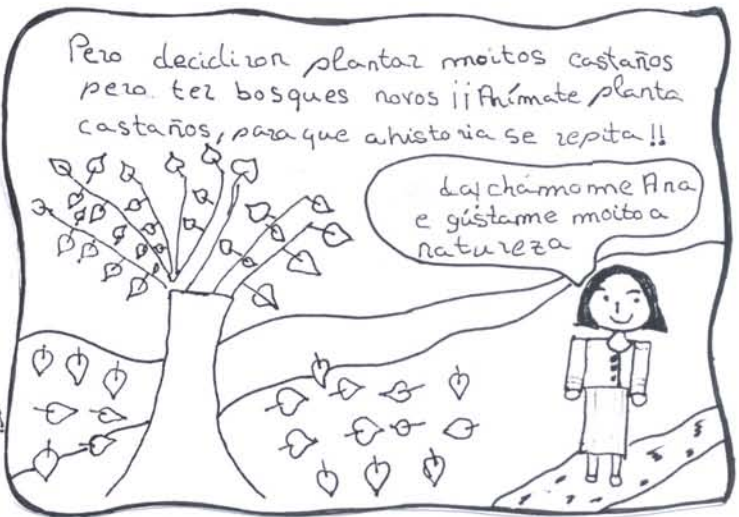 Pero decidiron plantar moitos castaños
pera ter bosques novos ¡¡Anímate planta
castaños, para que ahistoria se repita!!
chámome Ana
e gústame moito a
natureza